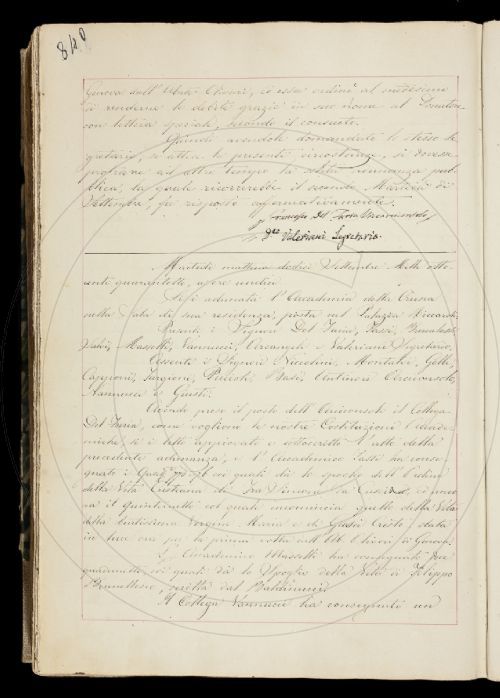 840
Genova dall'Abate Olivieri, ed essa ordinò al medesimo
di renderne le debite grazie in suo nome al Donatore
con lettera speciale, secondo il consueto.
Quindi avendole domandato lo stesso Se-
gretario, se attesa la presente circostanza, si dovesse
protrarre ad altro tempo la solita adunanza pub-
blica, la quale ricorrerebbe il secondo Martedì di
Settembre, fu risposto affermativamente.
Francesco Del Furia Vicearciconsolo
Valeriani Segretario
Martedì mattina dodici Settembre Mille otto-
cento quarantotto, a ore undici
Si è adunata l'Accademia della Crusca
nella Sala di sua residenza, posta nel Palazzo Riccardi.
Presenti i Signori Del Furia, Fassi, Brucalassi
Masselli, Vannucci, Arcangeli e Valeriani Segretario.
Assenti i Signori Niccolini, Montalvi, Gelli,
Capponi, Targioni, Puccioli, Basi, Antinori Arciconsolo,
Mannucci e Giusti.
Avendo preso il posto dell'Arciconsolo il Collega
Del Furia, come vogliono le nostre Costituzioni Accade-
miche, si è letto approvato e sottoscritto l'atto della
precedente adunanza, e l'Accademico Fassi ha conse-
gnati i quad coi quali dà lo spoglio dell'Ordine
della Vita Cristiana di Fra Simone da Cascia, e ancora
il quinternetto col quale incomincia quello della Vita
della beatissima Vergine Maria e di Gesù Cristo, data
in luce ora per la prima volta dall'Ab. Olivieri di Genova.
L'Accademico Masselli ha consegnati due
quadernetti coi quali dà lo Spoglio della Vita di Filippo
Brunellesco, scritta dal Baldinucci.
Il Collega Vannucci ha consegnato un